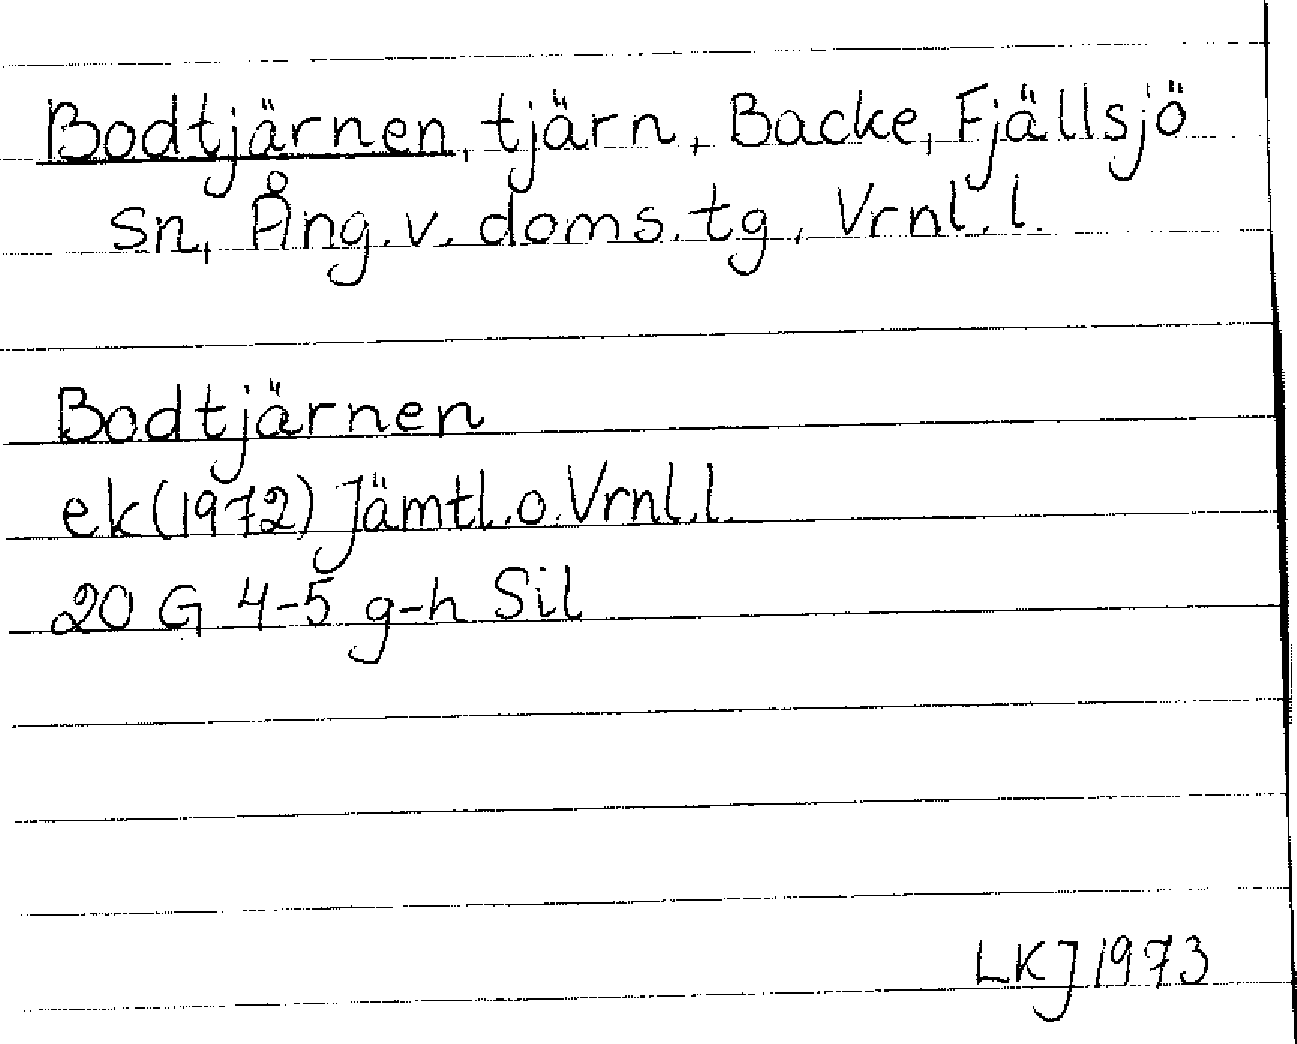 Bodtjärnen, tjärn, Backe, Fjällsjö
sn, Ång. v. doms. tg, Vrnl. l.
Bodtjärnen
ek (1972) Jämtl. o. Vrnl. l.
20 G 4-5 g-h Sil
LKJ 1973